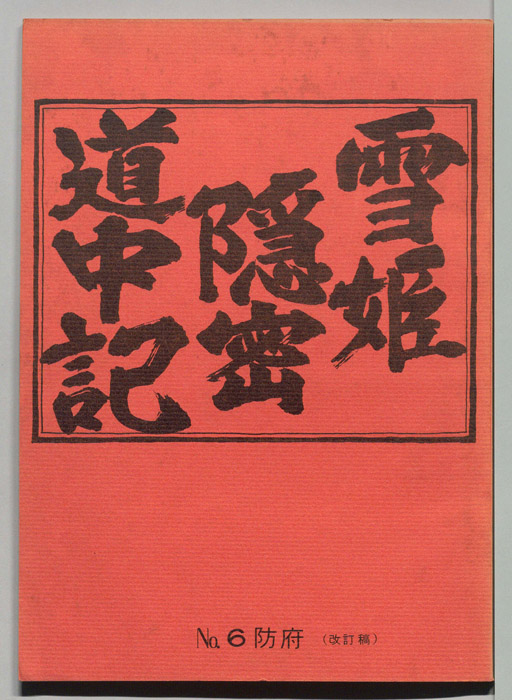 雪姫
隠密
道中記
No.6 防府 (改訂稿)